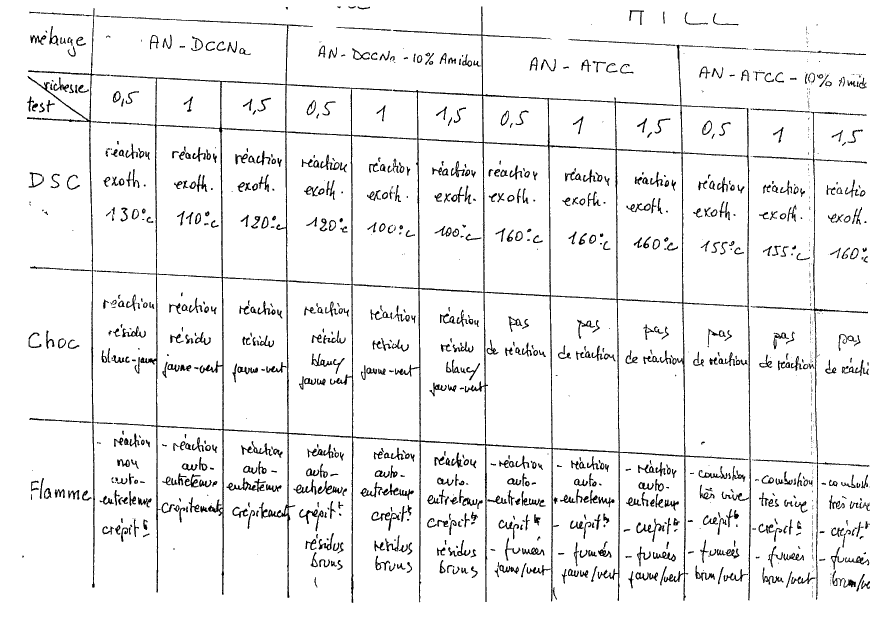 mélange AN-DCCNa AN-DCCNa-10% Amidon AN-ATCC AN-ATCC-10% Amid
richesse
test 0,5 1 1,5 0,5 1 1,5 0,5 1 1,5 0,5 1 1,5
DSC
réaction réaction réaction réaction réaction réaction réaction réaction réaction réaction réaction réactio
exoth. exoth. exoth. exoth. exoth. exoth. exoth. exoth. exoth. exoth. exoth. exoth.
130°c 110°c 120°c 120°c 100°c 100°c 160°c 160°c 160°c 155°c 155°c 160°
Choc
réaction réaction réaction réaction réaction réaction pas pas pas pas pas pas
résidu résidu résidu résidu résidu résidu de réaction de réaction de réaction de réaction de réaction de réacti
blanc-jaune jaune-vert jaune-vert blanc/ jaune-vert blanc/
jaune vert jaune-vert
Flamme
- réaction - réaction réaction réaction réaction réaction - réaction - réaction - réaction - combustion - combustion - combust
non auto- auto- auto- auto- auto- auto- auto- auto- très vive très vive très vive
auto- entretenue entretenue entretenue entretenue entretenue entretenue entretenue entretenue - crépit.ts - crépit.ts - crépit.
entretenue - crépitements crépitements crépit.ts crépit.ts crépit.ts crépit.ts - crépit.ts - crépit.ts - fumées - fumées - fumées
crépit.ts résidus résidus résidus - fumées - fumées - fumées brun/vert brun/vert brun/ve
bruns bruns bruns jaune/vert jaune/vert jaune/vert